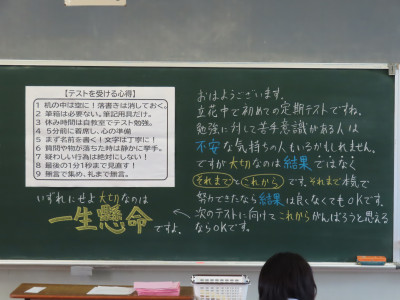 【テストを受ける心得】
1 机の中は空に!落書きは消しておく。
2 筆箱は必要ない。筆記用具だけ。
3 休み時間は自教室でテスト勉強。
4 5分前に着席し、心の準備
5 まず名前を書く!文字は丁寧に!
6 質問や物が落ちた時は静かに挙手。
7 疑わしい行為は絶対にしない!
8 最後の1分1秒まで見直す!
9 無言で集め、礼まで無言。
いずれにせよ大切なのは
一生懸命
ですよ。
おはようございます。
立花中で初めての定期テストですね。
勉強に対して苦手意識がある人は
不安な気持ちの人もいるかもしれません。
ですが大切なのは結果ではなく
それまでとこれからです。それまで本気で
努力できたなら結果は良くなくてもOKです。
次のテストに向けてこれからがんばろうと思える
ならOKです。